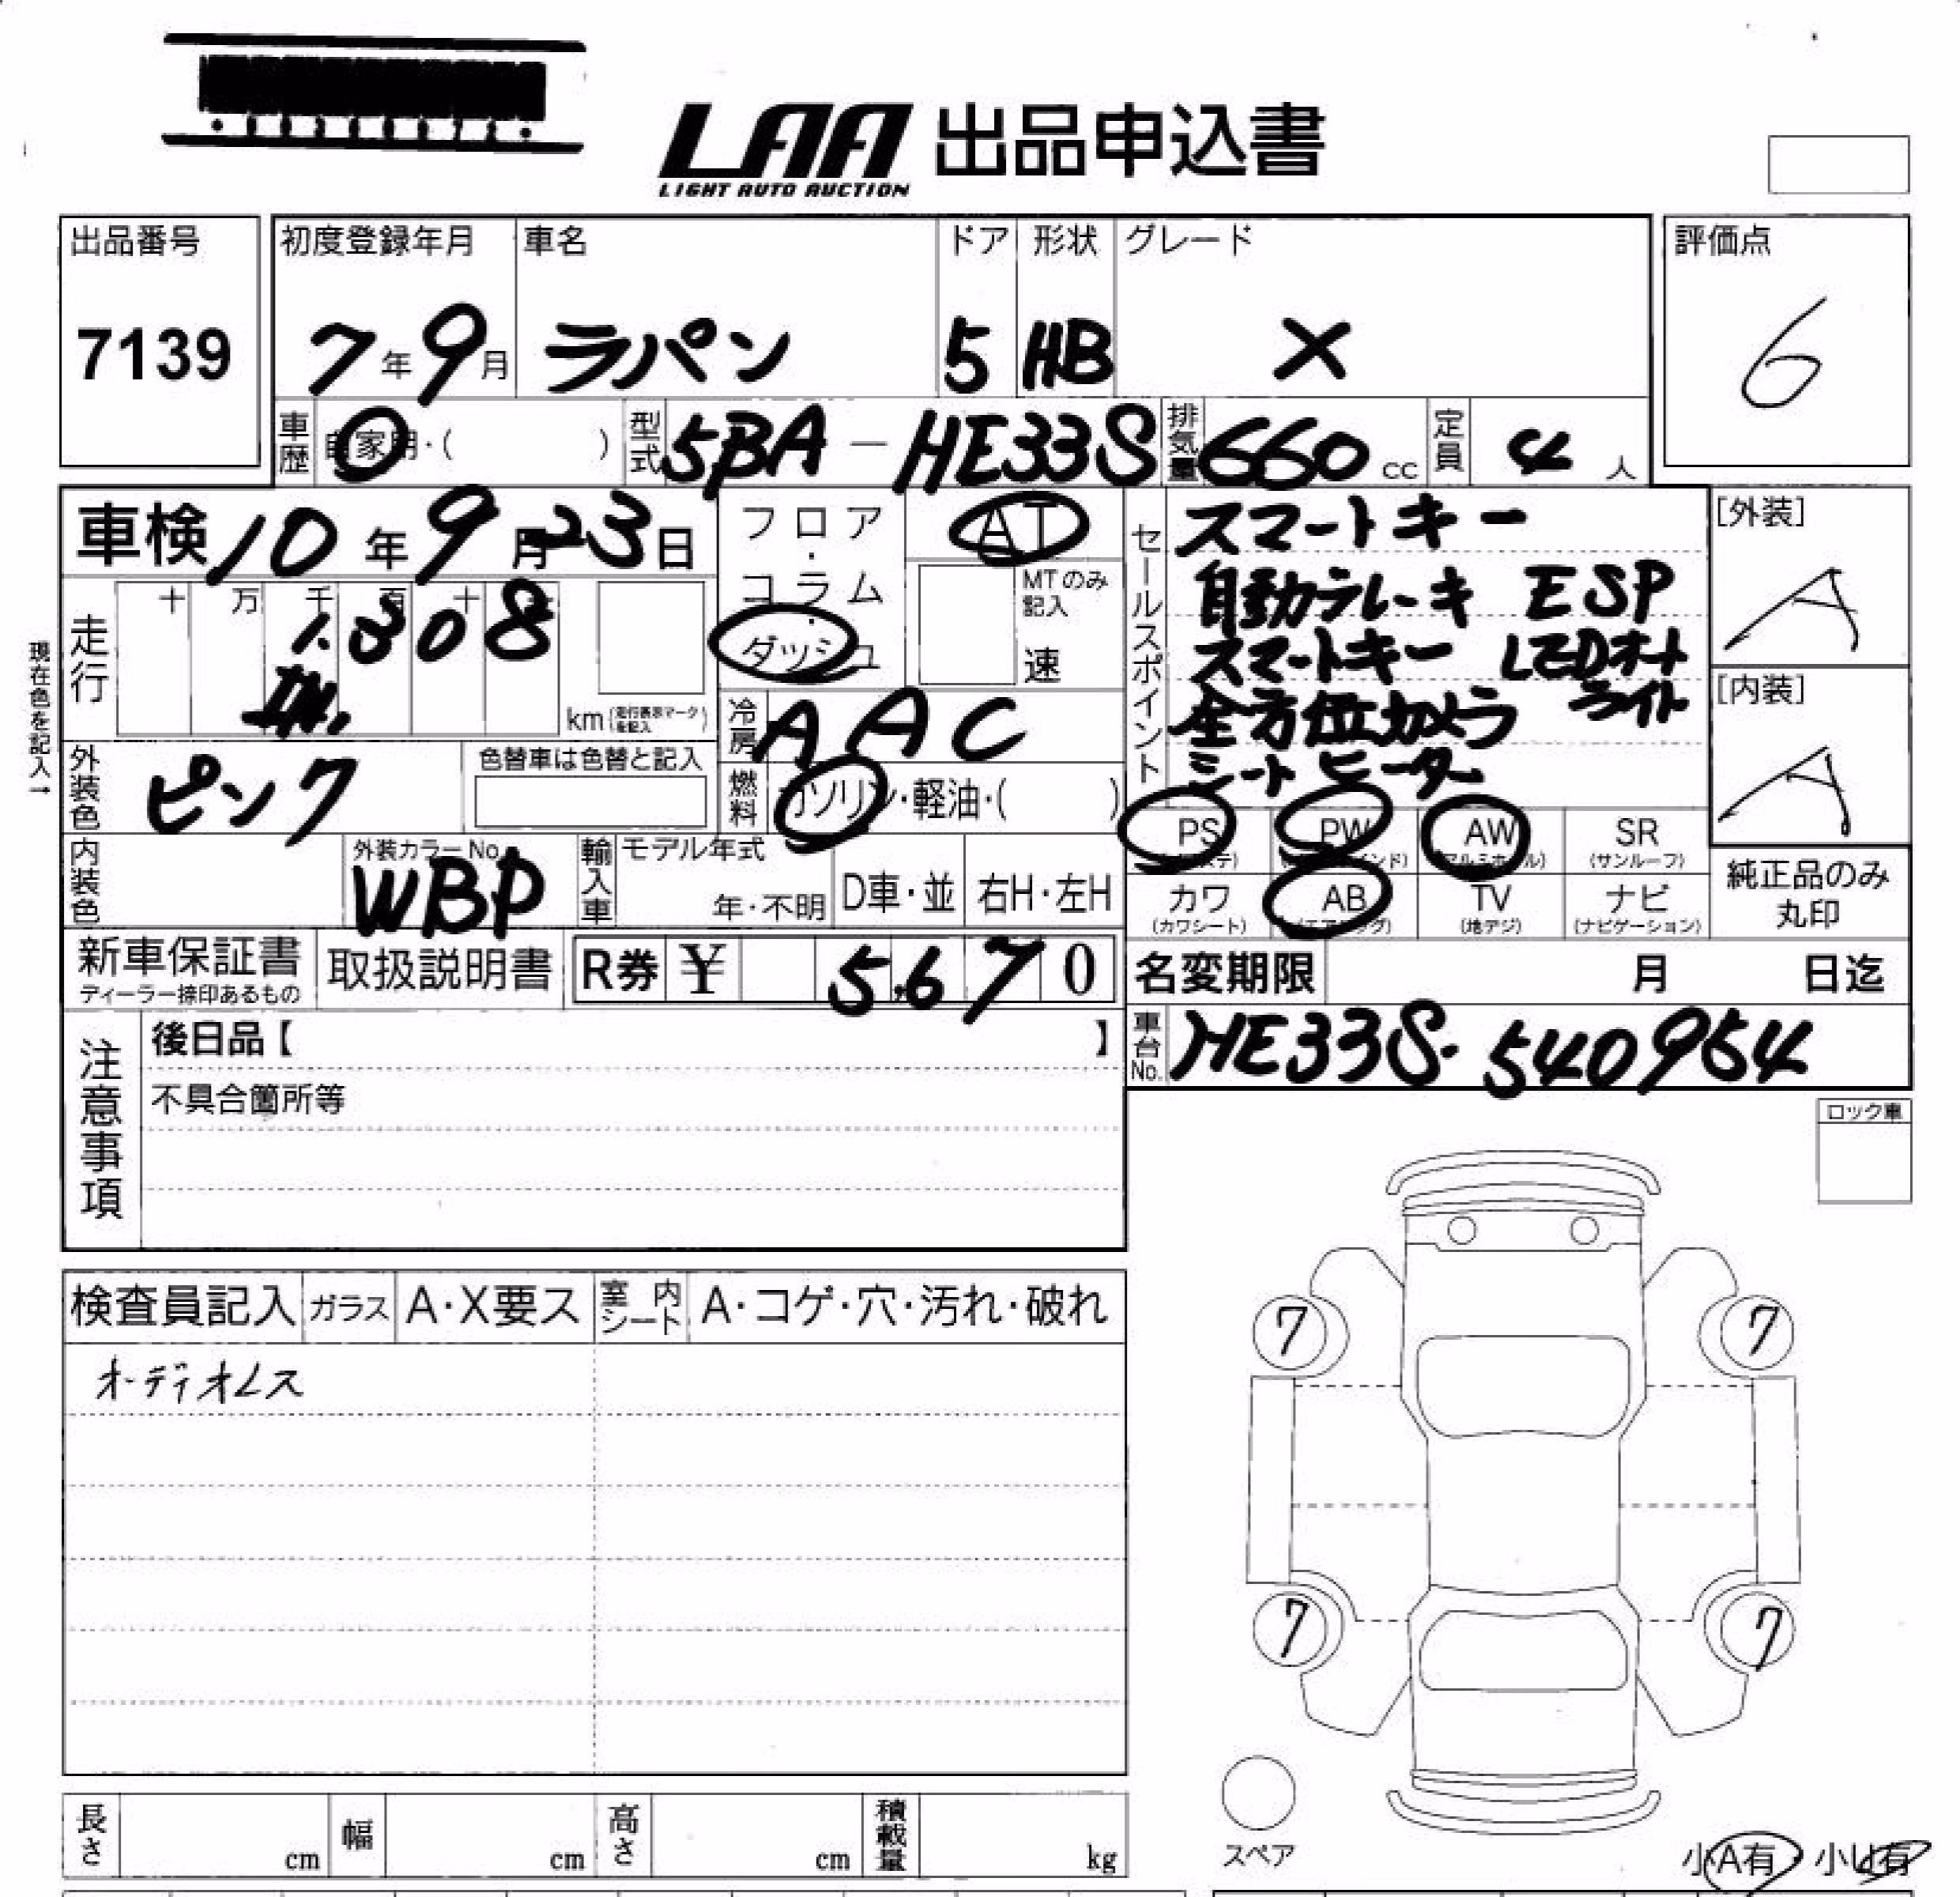 LAA 出品申込書
LIGHT AUTO AUCTION
出品番号 初度登録年月 車名 ドア 形状 グレード 評価点
7139 7年9月 ラパン 5 HB X 6
車歴 自家用・( ) 型式 5BA-HE33S 排気量 660cc 定員 4人
車検 10年9月23日
フロア・コラム・ダッシュ AT
MTのみ記入 速
セールスポイント
スマートキー
自動ブレーキ ESP
スマートキー LEDオート
全方位カメラ ライト
シートヒーター
[外装] A
[内装] A
現在色を記入→
走行 十 万 千 百 十
1.308
km(走行表示マークを記入)
冷房 AAC
外装色 ピンク 色替車は色替と記入
燃料 ガソリン・軽油・( )
PS PW AW SR
(サンルーフ)
内装色 外装カラーNo. WBP
輸入車 モデル年式 年・不明 D車・並 右H・左H
カワ AB TV ナビ
(カワシート) (エアバッグ) (地デジ) (ナビゲーション)
純正品のみ
丸印
新車保証書 取扱説明書 R券 ¥ 5,670
ディーラー捺印あるもの
名変期限 月 日迄
車台No. HE33S-540954
注意事項
後日品【 】
不具合箇所等
ロック車
検査員記入 ガラス A・X要ス 室内シート A・コゲ・穴・汚れ・破れ
オーディオレス
7 7
7 7
スペア
小A有・小U有
長さ cm 幅 cm 高さ cm 積載量 kg